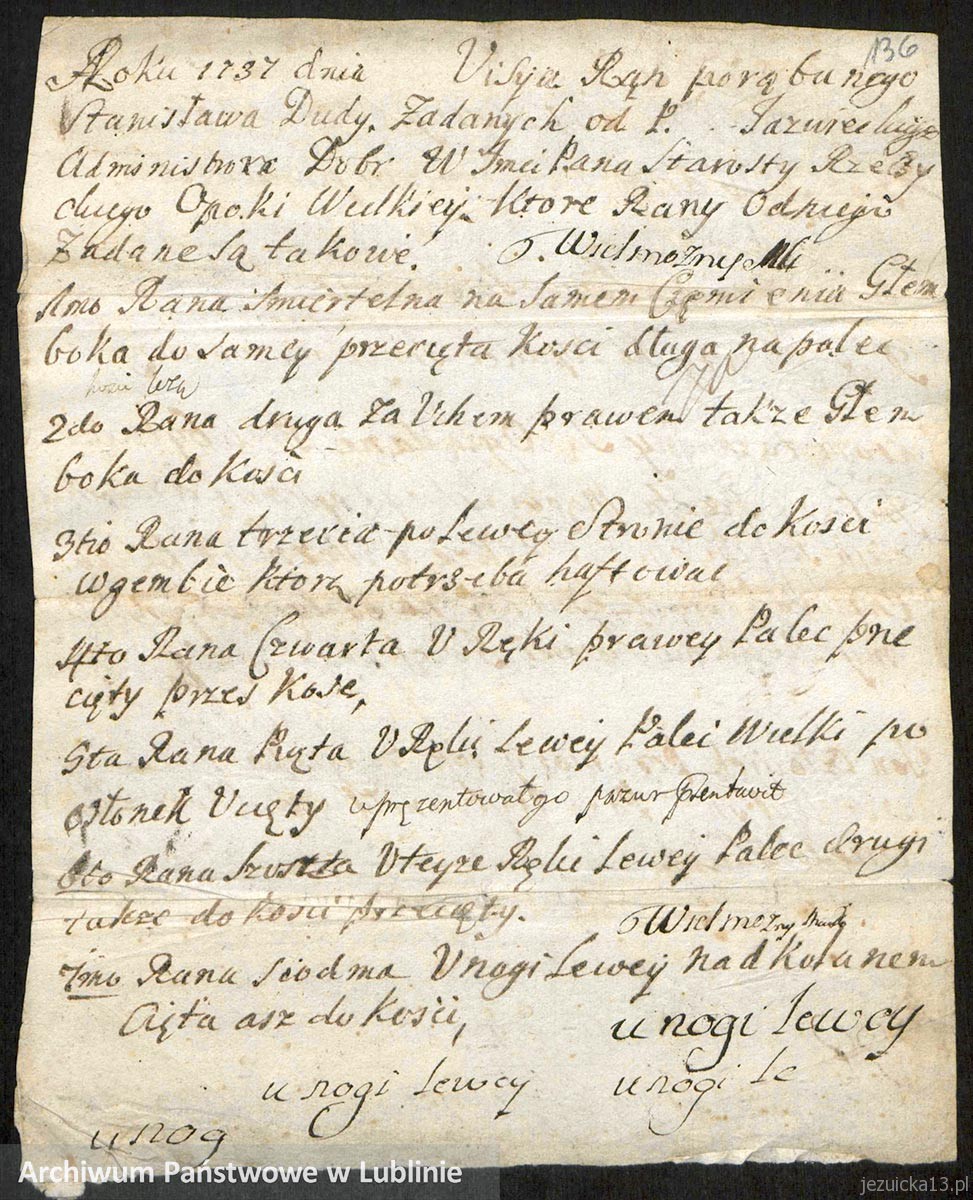 136
Roku 1737 dnia Visya Ran porąbanego
Stanisława Dudy. Zadanych od P.
Administrora Dobr W Jmci Pana Starosty Rzeczy
ckiego Opoki Wielkiey. Ktore Rany Odniego
Zadane Są takowe.
1mo Rana Smiertelna na Samem Cięmieniu Głem
boka do Samey przecięta Kosci długa na palec
2do Rana druga Za Uhem prawem także Głem
boka do Kosci
3tio Rana trzecia po Lewey Stronie do Kosci
w gembie ktorą potrzeba haftowac
4to Rana Czwarta U Ręki prawey Palec prze
cięty przes Kosc,
5ta Rana Piąta U Ręki Lewey Palec Wielki po
członek Ucięty uprezentował go
6to Rana Szosta Uteyze Ręki Lewey Palec drugi
także do Kosci przecięty.
7mo Rana Siodma U nogi Lewey nad Kolanem
Cięta asz do Kosci,
u nogi lewey
u nogi lewey u nogi Le
u nog
Archiwum Państwowe w Lublinie
jezuicka13.pl